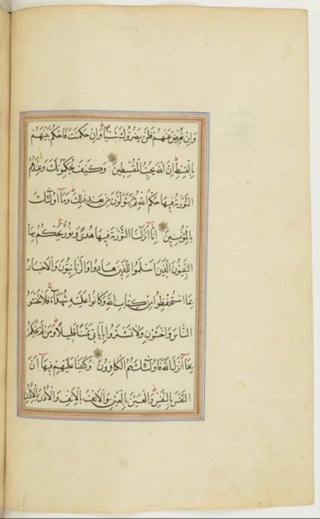 وَإِن تُعْرِضْ عَنْهُمْ فَلَن يَضُرُّوكَ شَيْئًا وَإِنْ حَكَمْتَ فَاحْكُم بَيْنَهُم
بِالْقِسْطِ إِنَّ اللَّهَ يُحِبُّ الْمُقْسِطِينَ وَكَيْفَ يُحَكِّمُونَكَ وَعِندَهُمُ
التَّوْرَيةُ فِيهَا حُكْمُ اللَّهِ ثُمَّ يَتَوَلَّوْنَ مِن بَعْدِ ذَلِكَ وَمَا أُولَئِكَ
بِالْمُؤْمِنِينَ إِنَّا أَنزَلْنَا التَّوْرَيةَ فِيهَا هُدًى وَنُورٌ يَحْكُمُ بِهَا
النَّبِيُّونَ الَّذِينَ أَسْلَمُوا لِلَّذِينَ هَادُوا وَالرَّبَّانِيُّونَ وَالْأَحْبَارُ
بِمَا اسْتُحْفِظُوا مِن كِتَابِ اللَّهِ وَكَانُوا عَلَيْهِ شُهَدَاءَ فَلَا تَخْشَوُا
النَّاسَ وَاخْشَوْنِ وَلَا تَشْتَرُوا بِآيَاتِي ثَمَنًا قَلِيلًا وَمَن لَمْ يَحْكُم
بِمَا أَنزَلَ اللَّهُ فَأُولَئِكَ هُمُ الْكَافِرُونَ وَكَتَبْنَا عَلَيْهِمْ فِيهَا أَنَّ
النَّفْسَ بِالنَّفْسِ وَالْعَيْنَ بِالْعَيْنِ وَالْأَنفَ بِالْأَنفِ وَالْأُذُنَ بِالْأُذُنِ